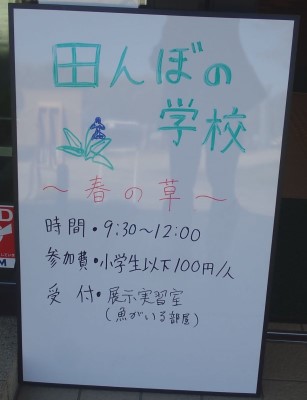 田んぼの
学校
～春の草～
時間・9:30～12:00
参加費・小学生以下100円/人
受付・展示実習室
(魚がいる部屋)